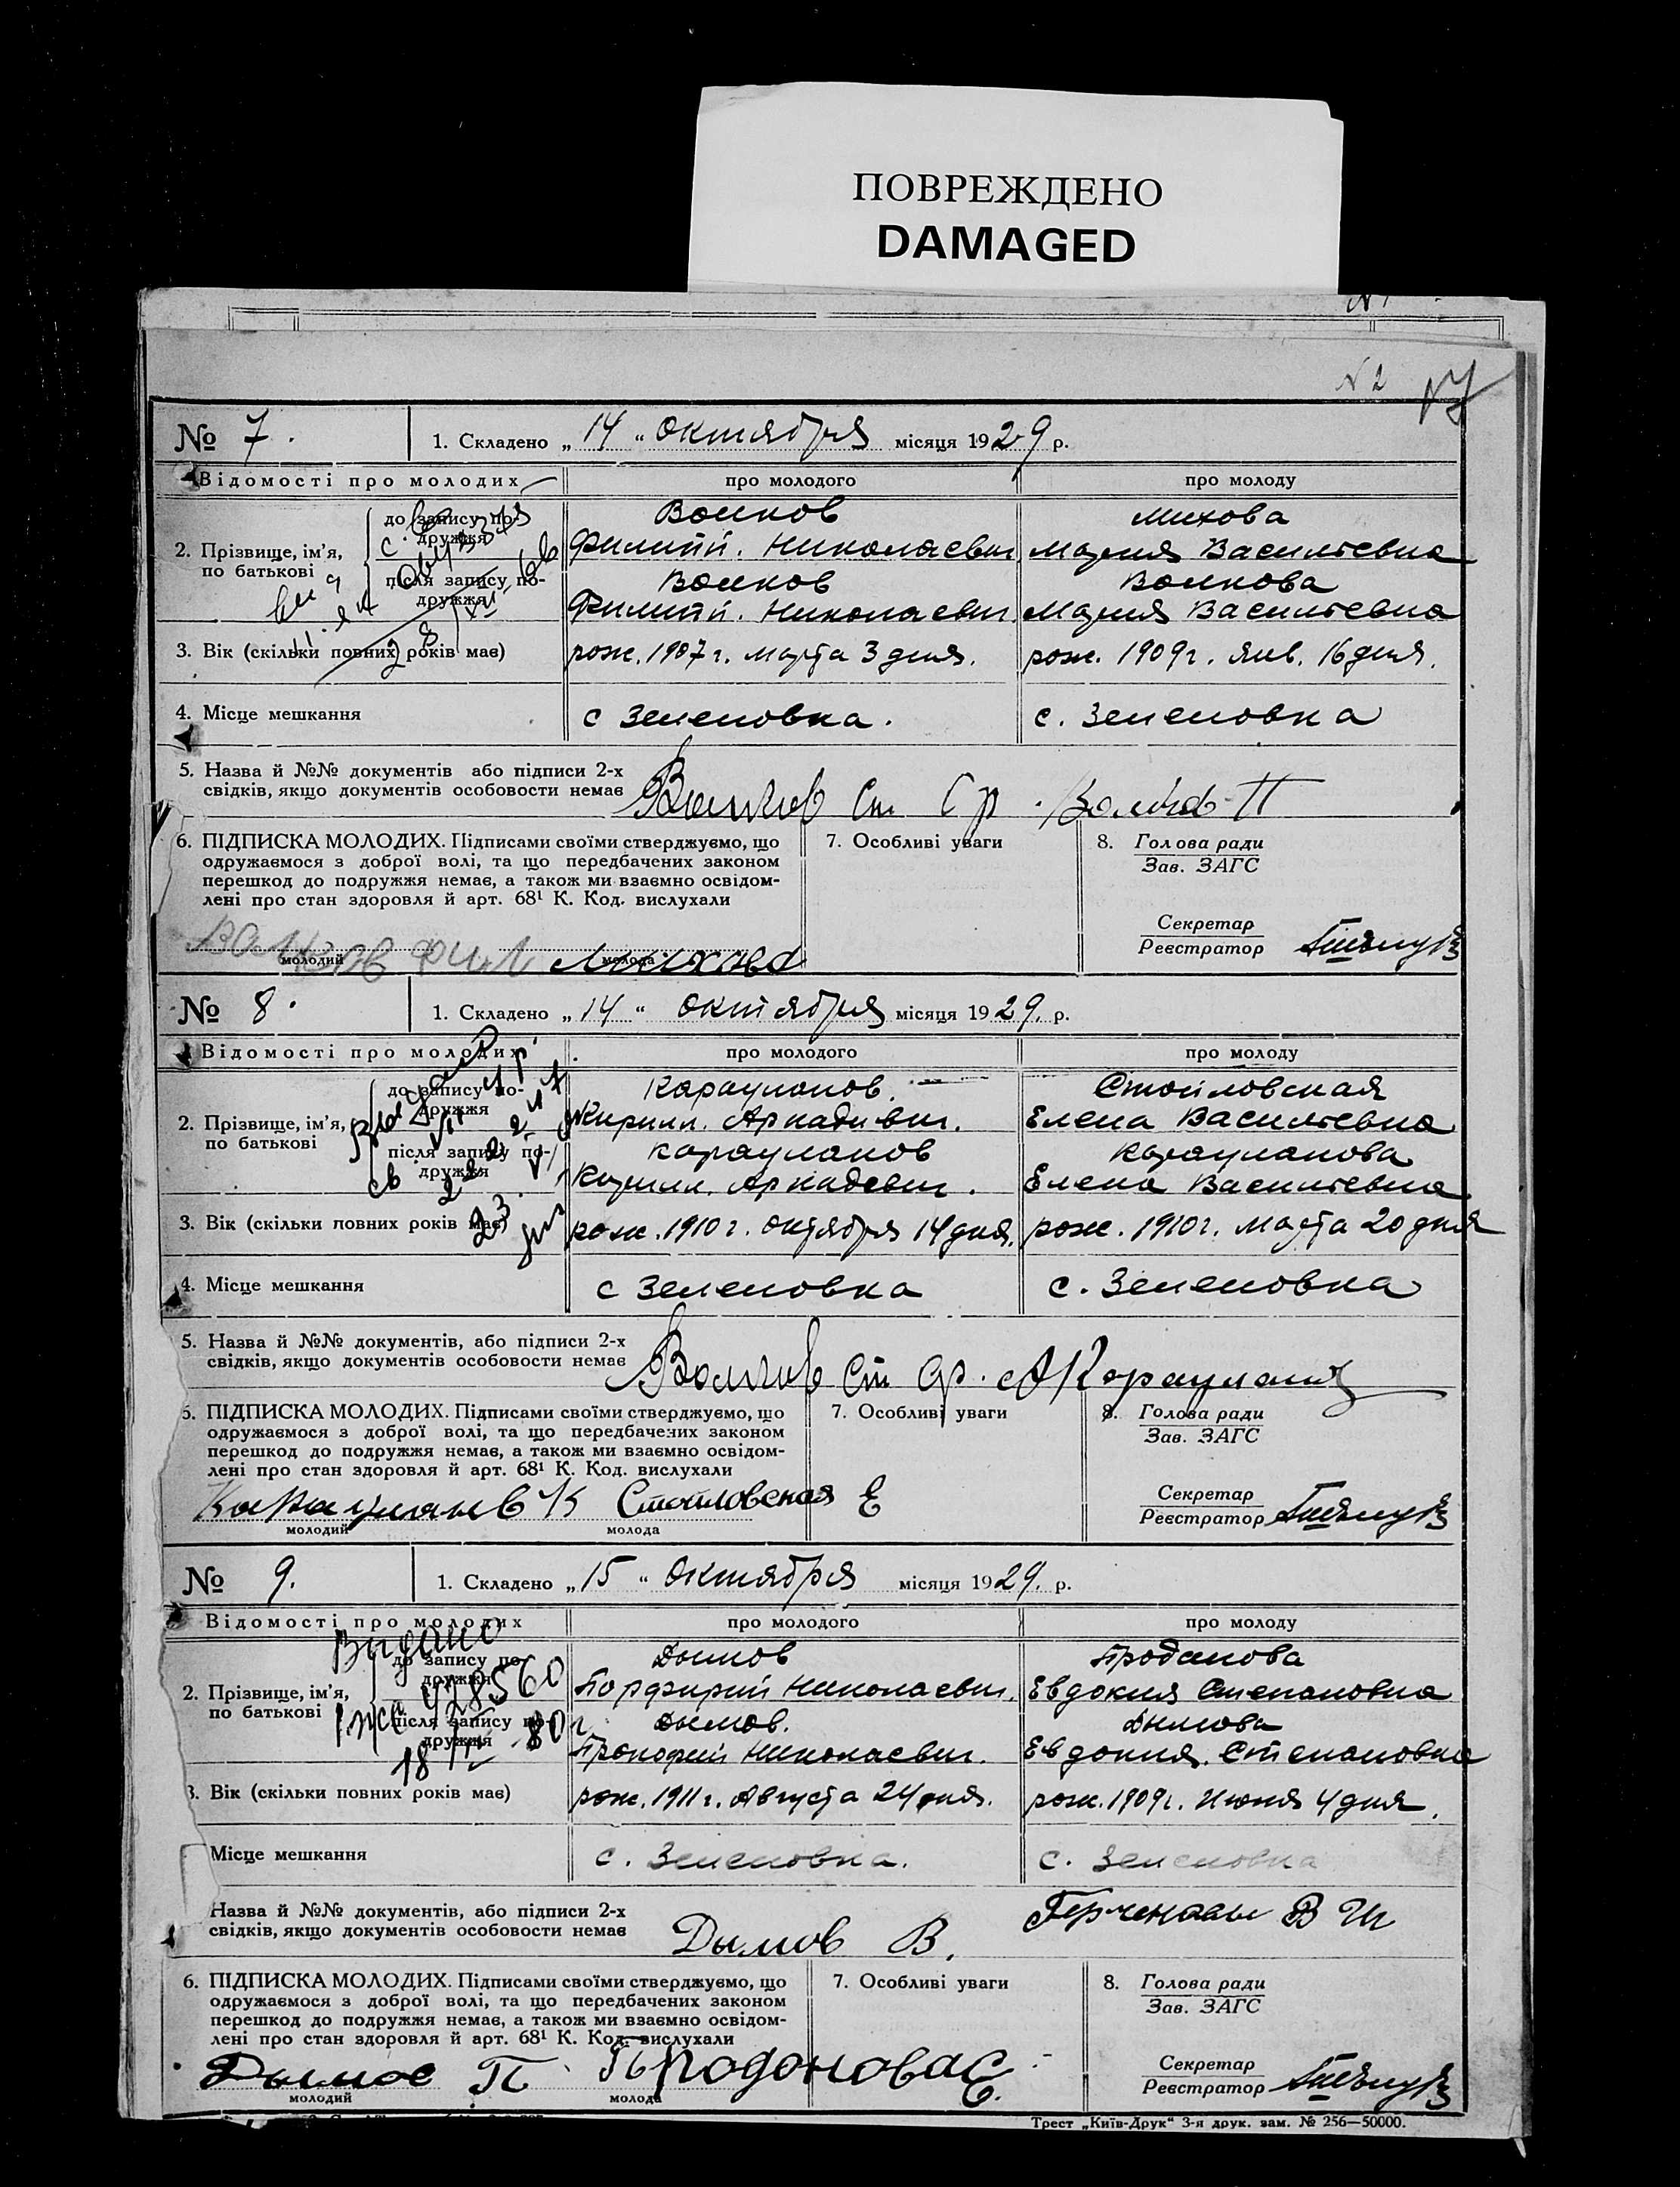 ПОВРЕЖДЕНО
DAMAGED
N 2
№ 7. 1. Складено „ 14 “ Октября місяця 1929 р.
Відомості про молодих про молодого про молоду
2. Прізвище, ім'я, по батькові
до запису подружжя
Волков Михова
Филипп. Николаевич Мария Васильевна
після запису подружжя
Волков Волкова
Филипп. Николаевич. Мария Васильевна
3. Вік (скільки повних років має) рож. 1907 г. Марта 3 дня. рож. 1909 г. Янв. 16 дня.
4. Місце мешкання с Зеленовка. с. Зеленовка
5. Назва й №№ документів або підписи 2-х
свідків, якщо документів особовости немає Волков Ст Ср. Волков П
6. ПІДПИСКА МОЛОДИХ. Підписами своїми стверджуємо, що 7. Особливі уваги 8. Голова ради
одружаємося з доброї волі, та що передбачених законом Зав. ЗАГС
перешкод до подружжя немає, а також ми взаємно освідом-
лені про стан здоровля й арт. 68¹ К. Код. вислухали
Секретар
Реєстратор
Волков Фил Михова
молодий молода
№ 8. 1. Складено „ 14 “ Октября місяця 1929. р.
Відомості про молодих про молодого про молоду
2. Прізвище, ім'я, по батькові
до запису подружжя
Карауланов. Стоиловская
Кирилл. Аркадивич. Елена Васильевна
після запису подружжя
Карауланов Карауланова
Кирилл. Аркадевич. Елена Васильевна
3. Вік (скільки повних років має) рож. 1910 г. Октября 14 дня. рож. 1910 г. Марта 20 дня
4. Місце мешкання с Зеленовка с. Зеленовка
5. Назва й №№ документів, або підписи 2-х
свідків, якщо документів особовости немає Волков Ст Ср. А Карауланов
6. ПІДПИСКА МОЛОДИХ. Підписами своїми стверджуємо, що 7. Особливі уваги 8. Голова ради
одружаємося з доброї волі, та що передбачених законом Зав. ЗАГС
перешкод до подружжя немає, а також ми взаємно освідом-
лені про стан здоровля й арт. 68¹ К. Код. вислухали
Секретар
Реєстратор
Карауланов К Стоиловская Е
молодий молода
№ 9. 1. Складено „ 15 “ Октября місяця 1929. р.
Відомості про молодих про молодого про молоду
Видано
2. Прізвище, ім'я, по батькові
до запису подружжя
Дымов Проданова
Порфирий Николаевич. Евдокия Степановна
після запису подружжя
Дымов. Дымова
Прокофий Николаевич. Евдокия. Степановна
3. Вік (скільки повних років має) рож. 1911 г. Августа 24 дня. рож. 1909 г. Июня 4 дня.
Місце мешкання с. Зеленовка. с. Зеленовка
Назва й №№ документів, або підписи 2-х
свідків, якщо документів особовости немає Дымов В.
6. ПІДПИСКА МОЛОДИХ. Підписами своїми стверджуємо, що 7. Особливі уваги 8. Голова ради
одружаємося з доброї волі, та що передбачених законом Зав. ЗАГС
перешкод до подружжя немає, а також ми взаємно освідом-
лені про стан здоровля й арт. 68¹ К. Код. вислухали
Секретар
Реєстратор
Дымов П. Продонова Е.
молодий молода
Трест „Київ-Друк“ 3-я друк. зам. № 256—50000.